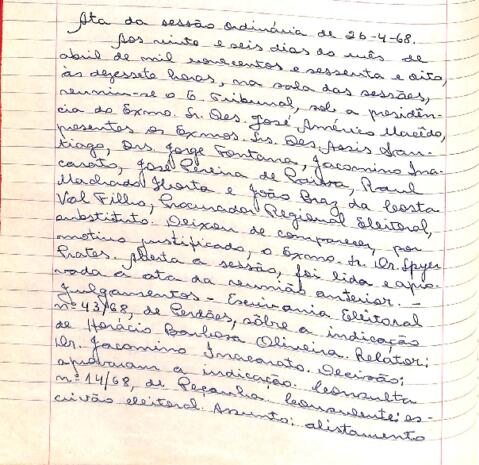 Ata da sessão ordinária de 26-4-68.
Aos vinte e seis dias do mês de
abril de mil novecentos e sessenta e oito,
às dezessete horas, na sala das sessões,
reuniu-se o E. Tribunal, sob a presidên-
cia do Exmo. Sr. Des. José Américo Macêdo,
presentes os Exmos. Srs. Des. Assis San-
tiago, Drs. Jorge Fontana, Jacomino Ina-
carato, José Pereira de Paiva, Raul
Machado Horta e João Braz da Costa
Val Filho, Procurador Regional Eleitoral,
substituto. Deixou de comparecer, por
motivo justificado, o Exmo. Sr. Dr. Spyer
Prates. Aberta a sessão, foi lida e apro-
vada a ata da reunião anterior. -
Julgamentos - Escrivania Eleitoral
nº 43/68, de Perdões, sôbre a indicação
de Horácio Barbosa Oliveira. Relator:
Dr. Jacomino Inacarato. Decisão:
aprovaram a indicação. Consulta
nº 14/68, de Peçanha. Consulente: es-
crivão eleitoral. Assunto: alistamento